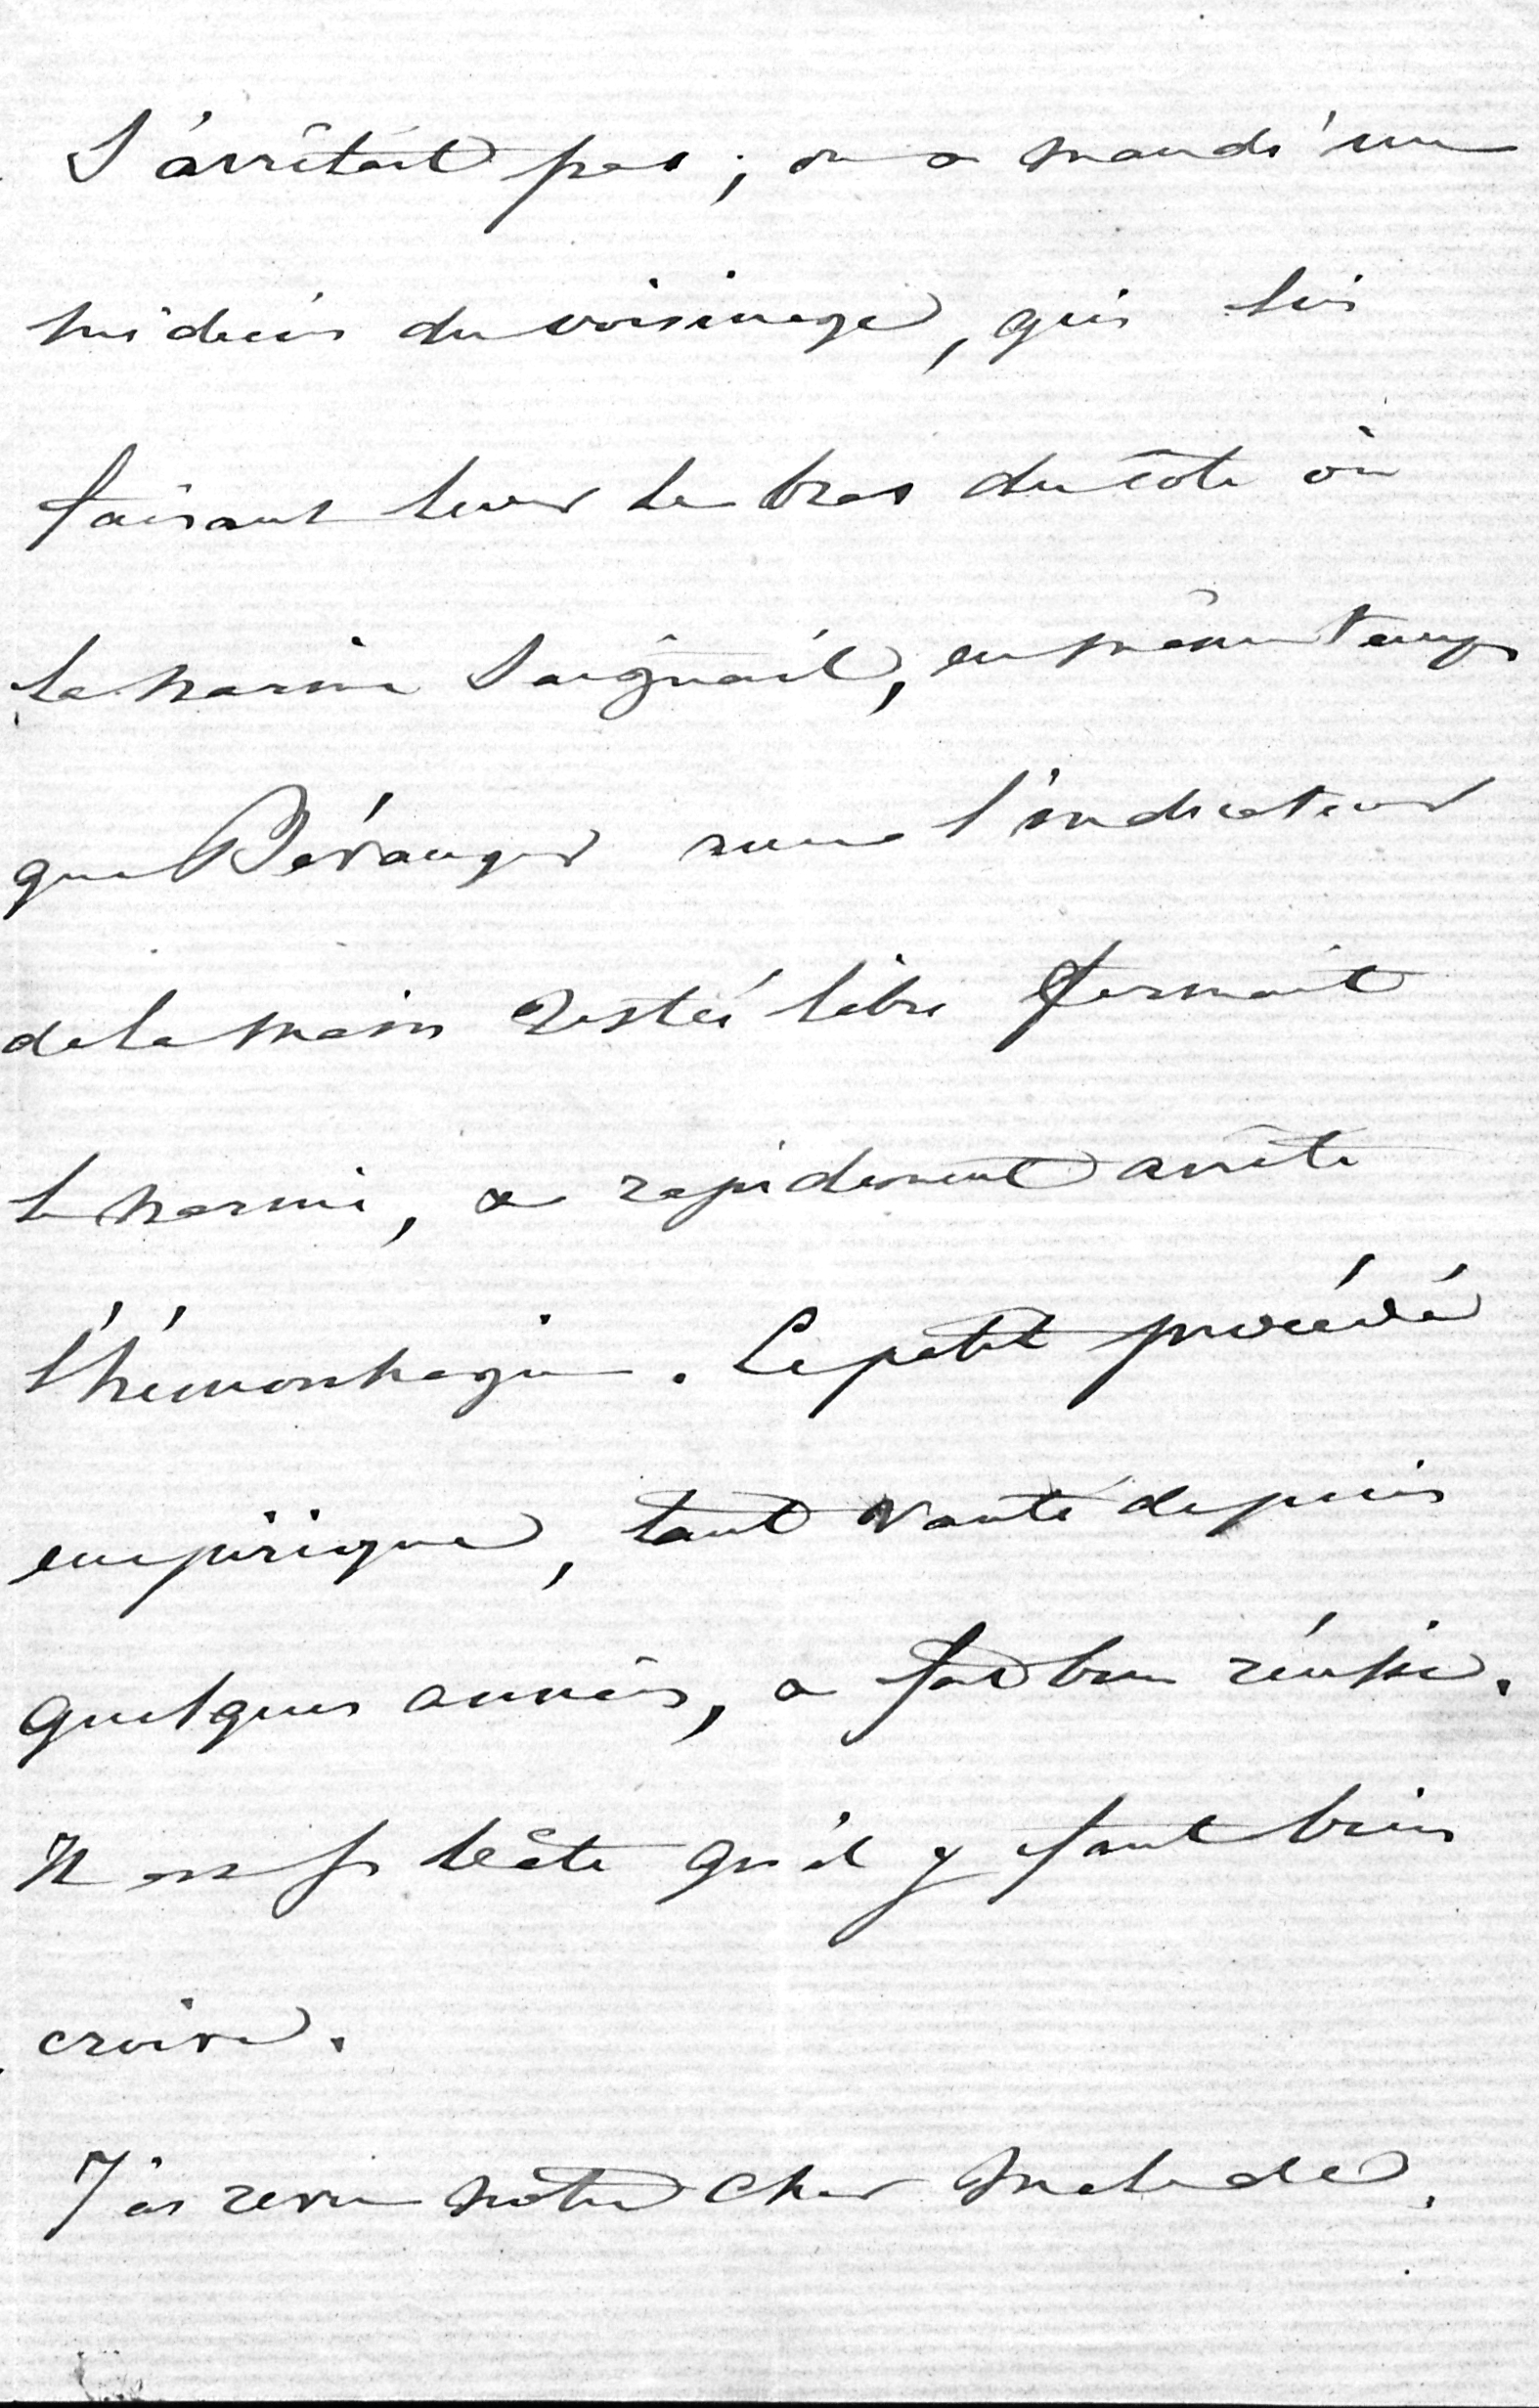 s'arrêtait pas ; on a mandé un
médecin du voisinage, qui lui
faisant lever le bras du côté où
la narine saignait, en même temps
que Béranger avec l'indicateur
de la main restée libre fermait
la narine, a rapidement arrêté
l'hémorrhagie. Ce petit procédé
empirique, tant vanté depuis
quelques années, a fort bien réussi.
Il est si bête qu'il y faut bien
croire.
J'ai revu notre cher malade.